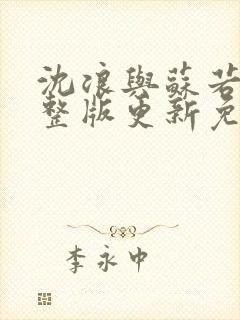 沈浪與蘇若
整版更新免
李永中